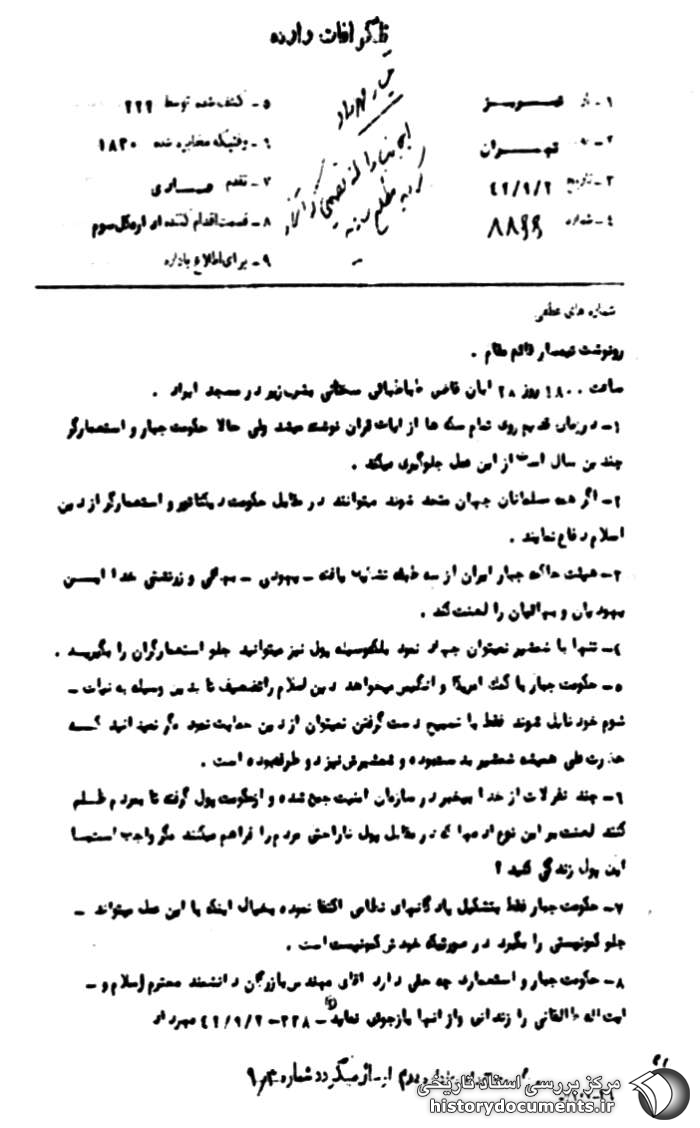 تلگرافات وارده
۱ـ از تبریز
۲ـ به تهران
۳ـ تاریخ ۴۲/۹/۲
۴ـ شماره ۸۸۶۶
۵ـ کشف شده توسط ۲۲۲
۶ـ وقتیکه مخابره شده ۱۸۳۰
۷ـ تقدم عادی
۸ـ قسمت اقدام کننده اداره کل سوم
۹ـ برای اطلاع باداره
شماره های عطفی
رونوشت تیمسار قائم مقام .
ساعت ۱۸۰۰ روز ۲۸ ابان قاضی طباطبائی سخنانی بشرح زیر در مسجد ایراد .
۱ـ در زمان قدیم روی تمام سکه ها از ایات قران نوشته میشد ولی حالا حکومت جبار و استعمارگر
چندین سال است از این عمل جلوگیری میکند .
۲ـ اگر همه مسلمانان جهان متحد شوند میتوانند در مقابل حکومت دیکتاتور و استعمارگر از دین
اسلام دفاع نمایند .
۳ـ هیئت حاکمه جبار ایران از سه طبقه تشکیل یافته ـ یهودی ـ بهائی و زرتشتی خدا ایـن
یهودیان و بهائیان را لعنت کند .
۴ـ تنها با شمشیر نمیتوان جهاد نمود بلکه بوسیله پول نیز میتوانید جلو استعمارگران را بگیرید .
۵ـ حکومت جبار با کمک امریکا و انگلیس میخواهد دین اسلام را تضعیف تا بدین وسیله به نیات ـ
شوم خود نایل شوند فقط با تسبیح دست گرفتن نمیتوان از دین حمایت نمود مگر نمیدانید کـه
حضرت علی همیشه شمشیر بدست بوده و شمشیرش نیز دو طرفه بوده است .
۶ـ چند نفر لات از خدا بیخبر در سازمان امنیت جمع شده و از حکومت پول گرفته تا بمردم ظـلم
کنند لعنت بر این نوع ادمها که در مقابل پول ناراحتی مردم را فراهم میکنند مگر واجب است بـا
این پول زندگی کنید ؟
۷ـ حکومت جبار فقط بتشکیل پادگانهای نظامی اکتفا نموده بخیال اینکه با این عمل میتواند ـ
جلو کمونیستی را بگیرد در صورتیکه خودش کمونیست است .
۸ـ حکومت جبار و استعمار چه حقی دارد اقای مهندس بازرگان دانشمند محترم اسلام و ـ
ایت اله طالقانی را زندانی و از انها بازجوئی نماید ـ ۲۲۸ـ ۴۲/۹/۲ مهرداد
مرکز بررسی اسناد تاریخی
historydocuments.ir